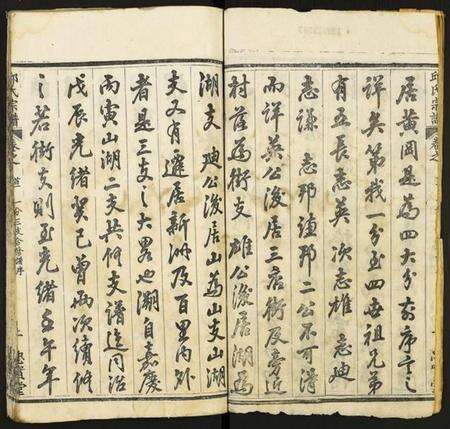 邱氏宗譜 卷之
居黃岡是為四大分前序言之
詳矣第我一分至四世祖兄弟
有五長志英次志雄 志迪
志謙 志邦謙邦二公不可得
而詳英公後居三店街及旁近
村落為街支雄公後居湖為
湖支 迪公後居山為山支山湖
支又有遷居新洲及百里內外
者是三支之大畧也溯自嘉慶
丙寅山湖二支共修支譜迨同治
戊辰光緒癸巳曾兩次續修
之若街支則至光緒壬午年
邱氏宗譜 卷之 一分三支合修譜序